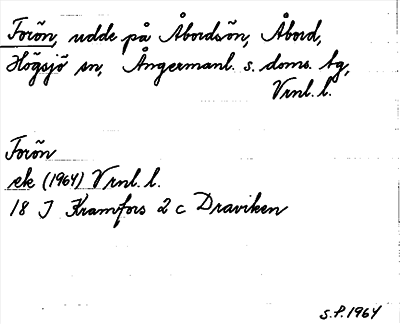 Forön, udde på Åbordsön, Åbord,
Högsjö sn, Ångermanl. s. doms. tg,
Vrnl. l.
Forön
ek (1964) Vrnl. l.
18 J Kramfors 2 c Draviken
S.P. 1964